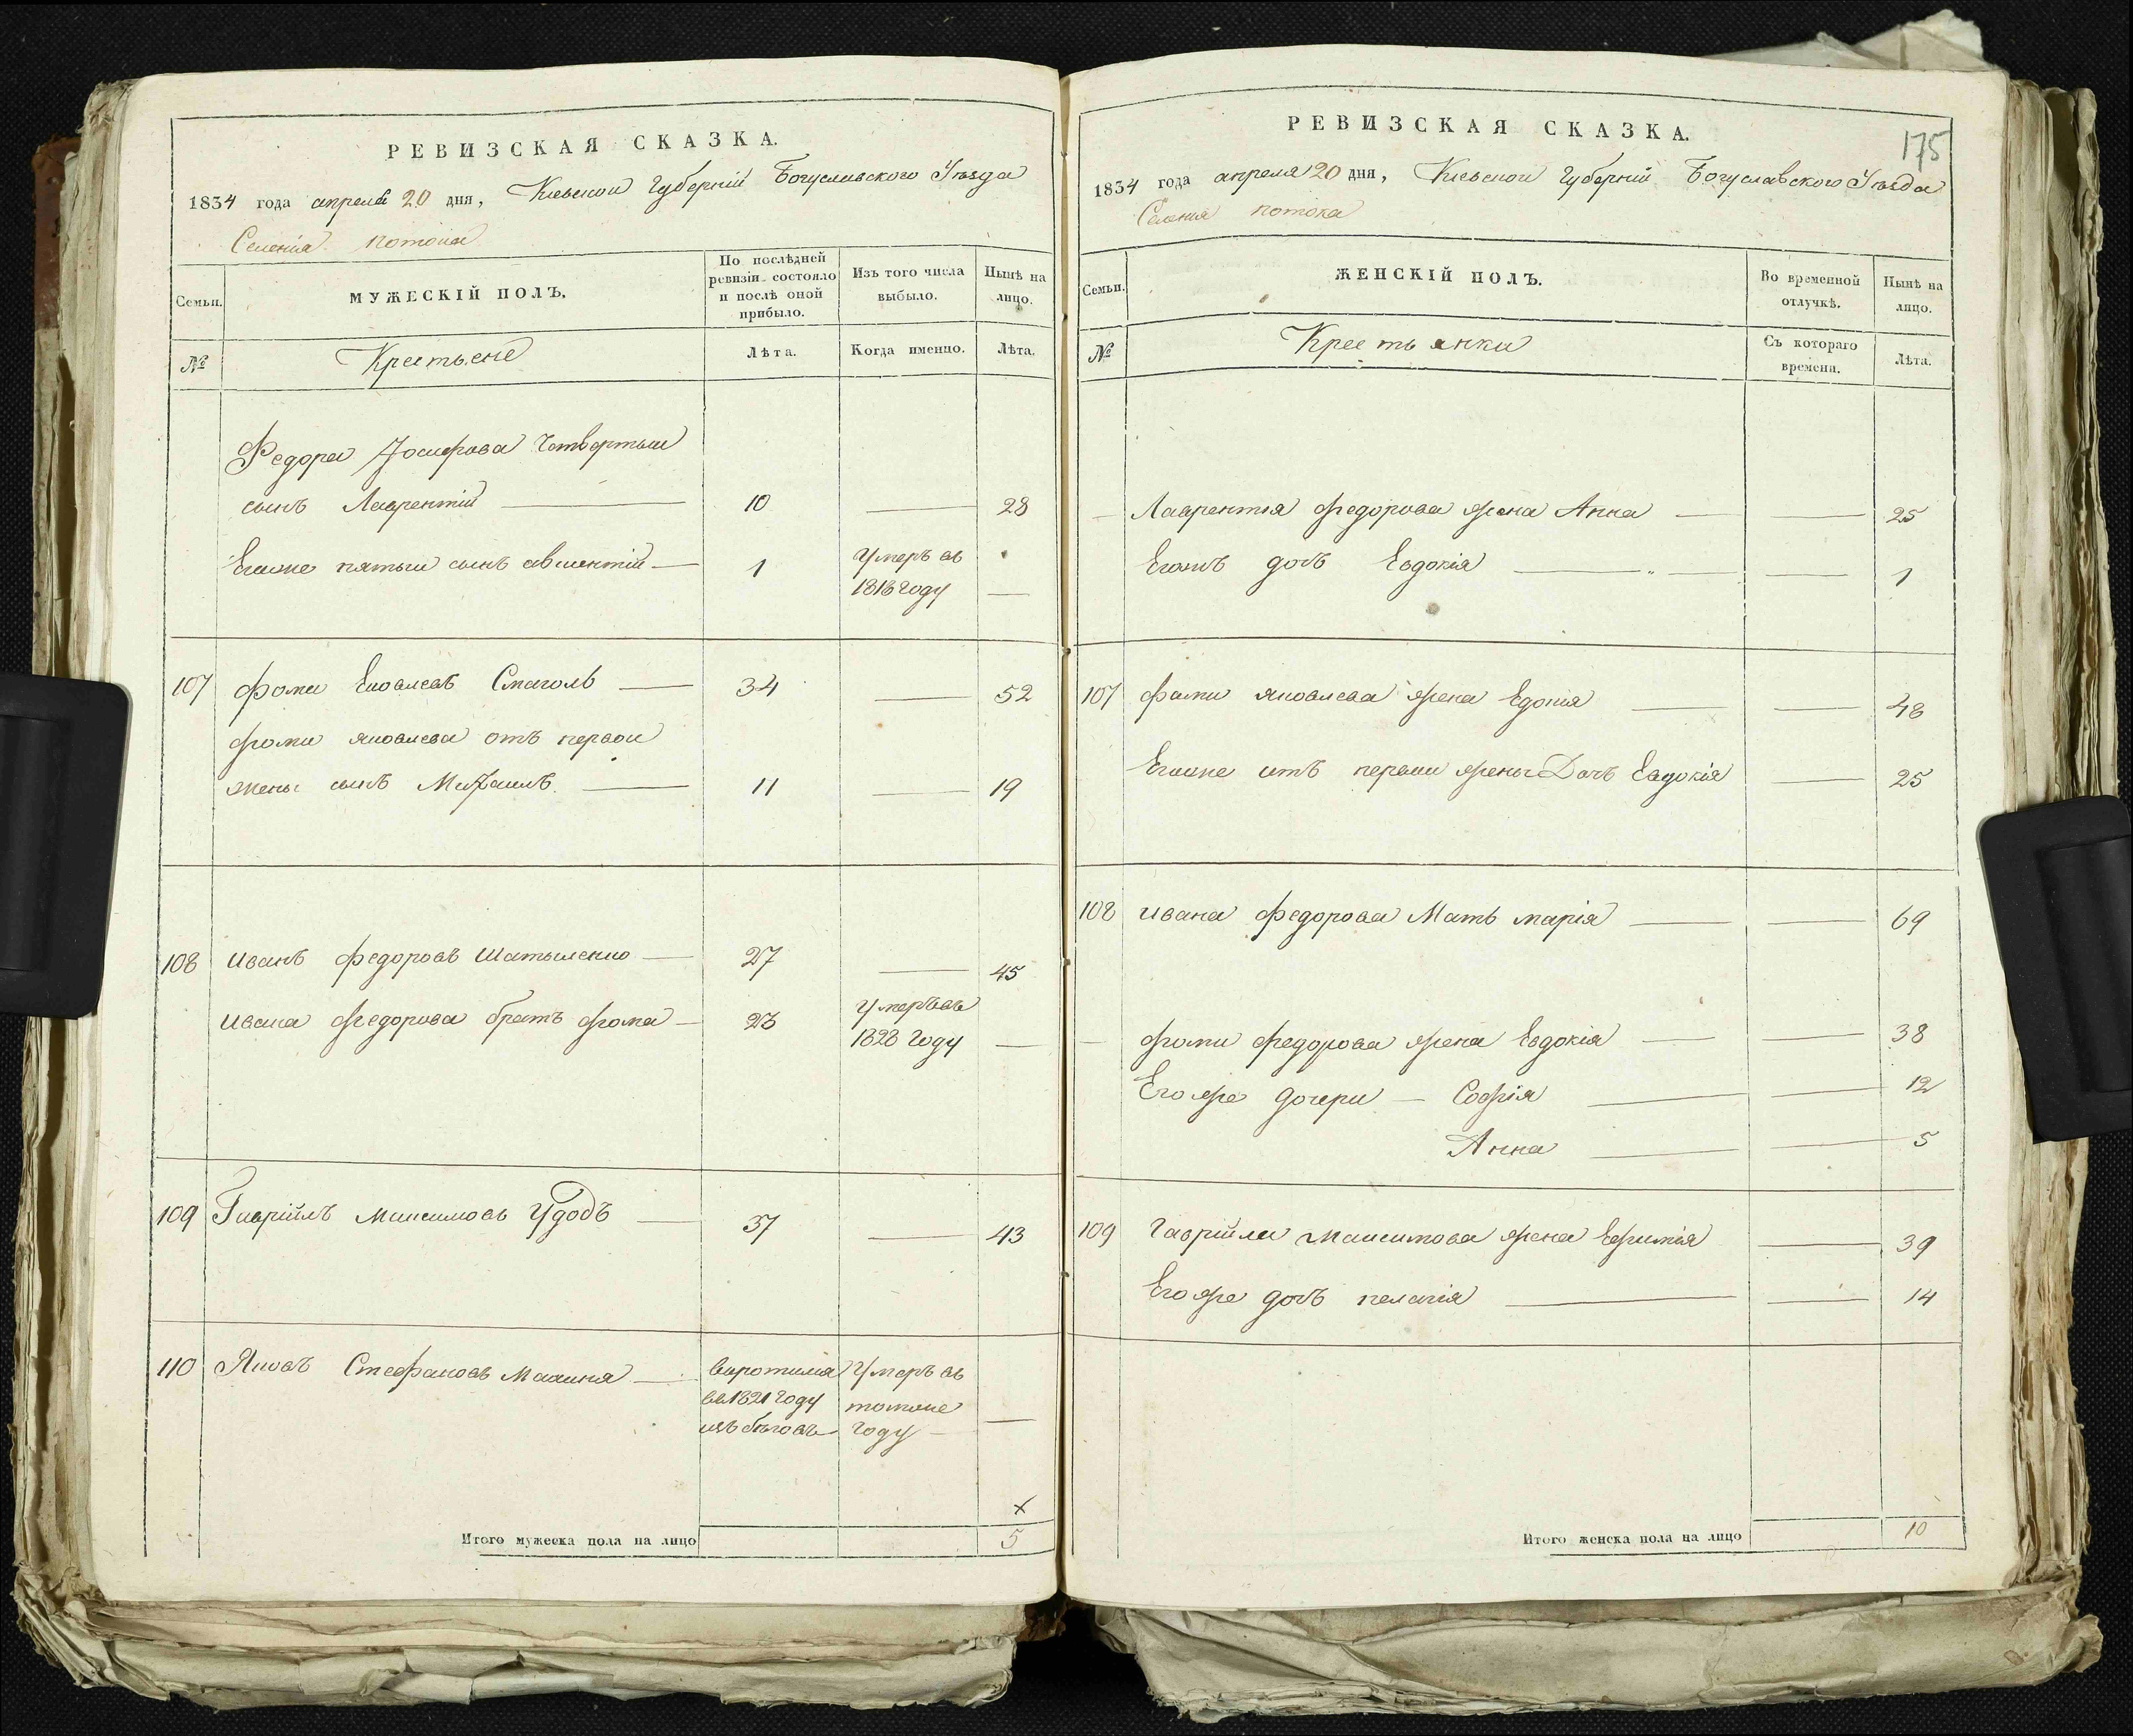 РЕВИЗСКАЯ СКАЗКА.
1834 года апреля 20 дня, Киевской Губерніи Богуславского Уѣзда
Селенія потока
Семьи.
МУЖЕСКІЙ ПОЛЪ.
По послѣдней
ревизіи состояло
и послѣ оной
прибыло.
Изъ того числа
выбыло.
Нынѣ на
лицо.
№
Крестьяне
Лѣта.
Когда именно.
Лѣта.
Федора Іосифова Четвертыи
сынъ Лаврентій 10 28
Егоже пятыи сынъ авксентій 1 Умеръ въ
1818 году
107 фома Яковлевъ 34 52
фомы яковлева отъ первои
жены сынъ Михаилъ 11 19
108 Иванъ федоровъ Шатыленко 27 45
Ивана федорова братъ фома 23 Умеръ въ
1828 году
109 Гавріилъ Максимовъ Удодъ 37 43
110 Яковъ Стефановъ воротился Умеръ въ
въ 1821 году томже
изъ бѣговъ году
х
Итого мужеска пола на лицо 5
РЕВИЗСКАЯ СКАЗКА.
175
1834 года апреля 20 дня, Киевской Губерніи Богуславского Уѣзда
Селенія потока
Семьи.
ЖЕНСКІЙ ПОЛЪ.
Во временной
отлучкѣ.
Нынѣ на
лицо.
№
Крестьянки
Съ котораго
времени.
Лѣта.
Лаврентія федорова жена Анна 25
дочь Евдокія 1
107 фомы яковлева жена 48
Егоже отъ первои жены Дочь Евдокія 25
108 Ивана федорова Мать марія 69
фомы федорова жена Евдокія 38
Егоже дочери Софія 12
Анна 5
109 Гавріила максимова жена Ефимія 39
Егоже дочь пелагія 14
Итого женска пола на лицо 10